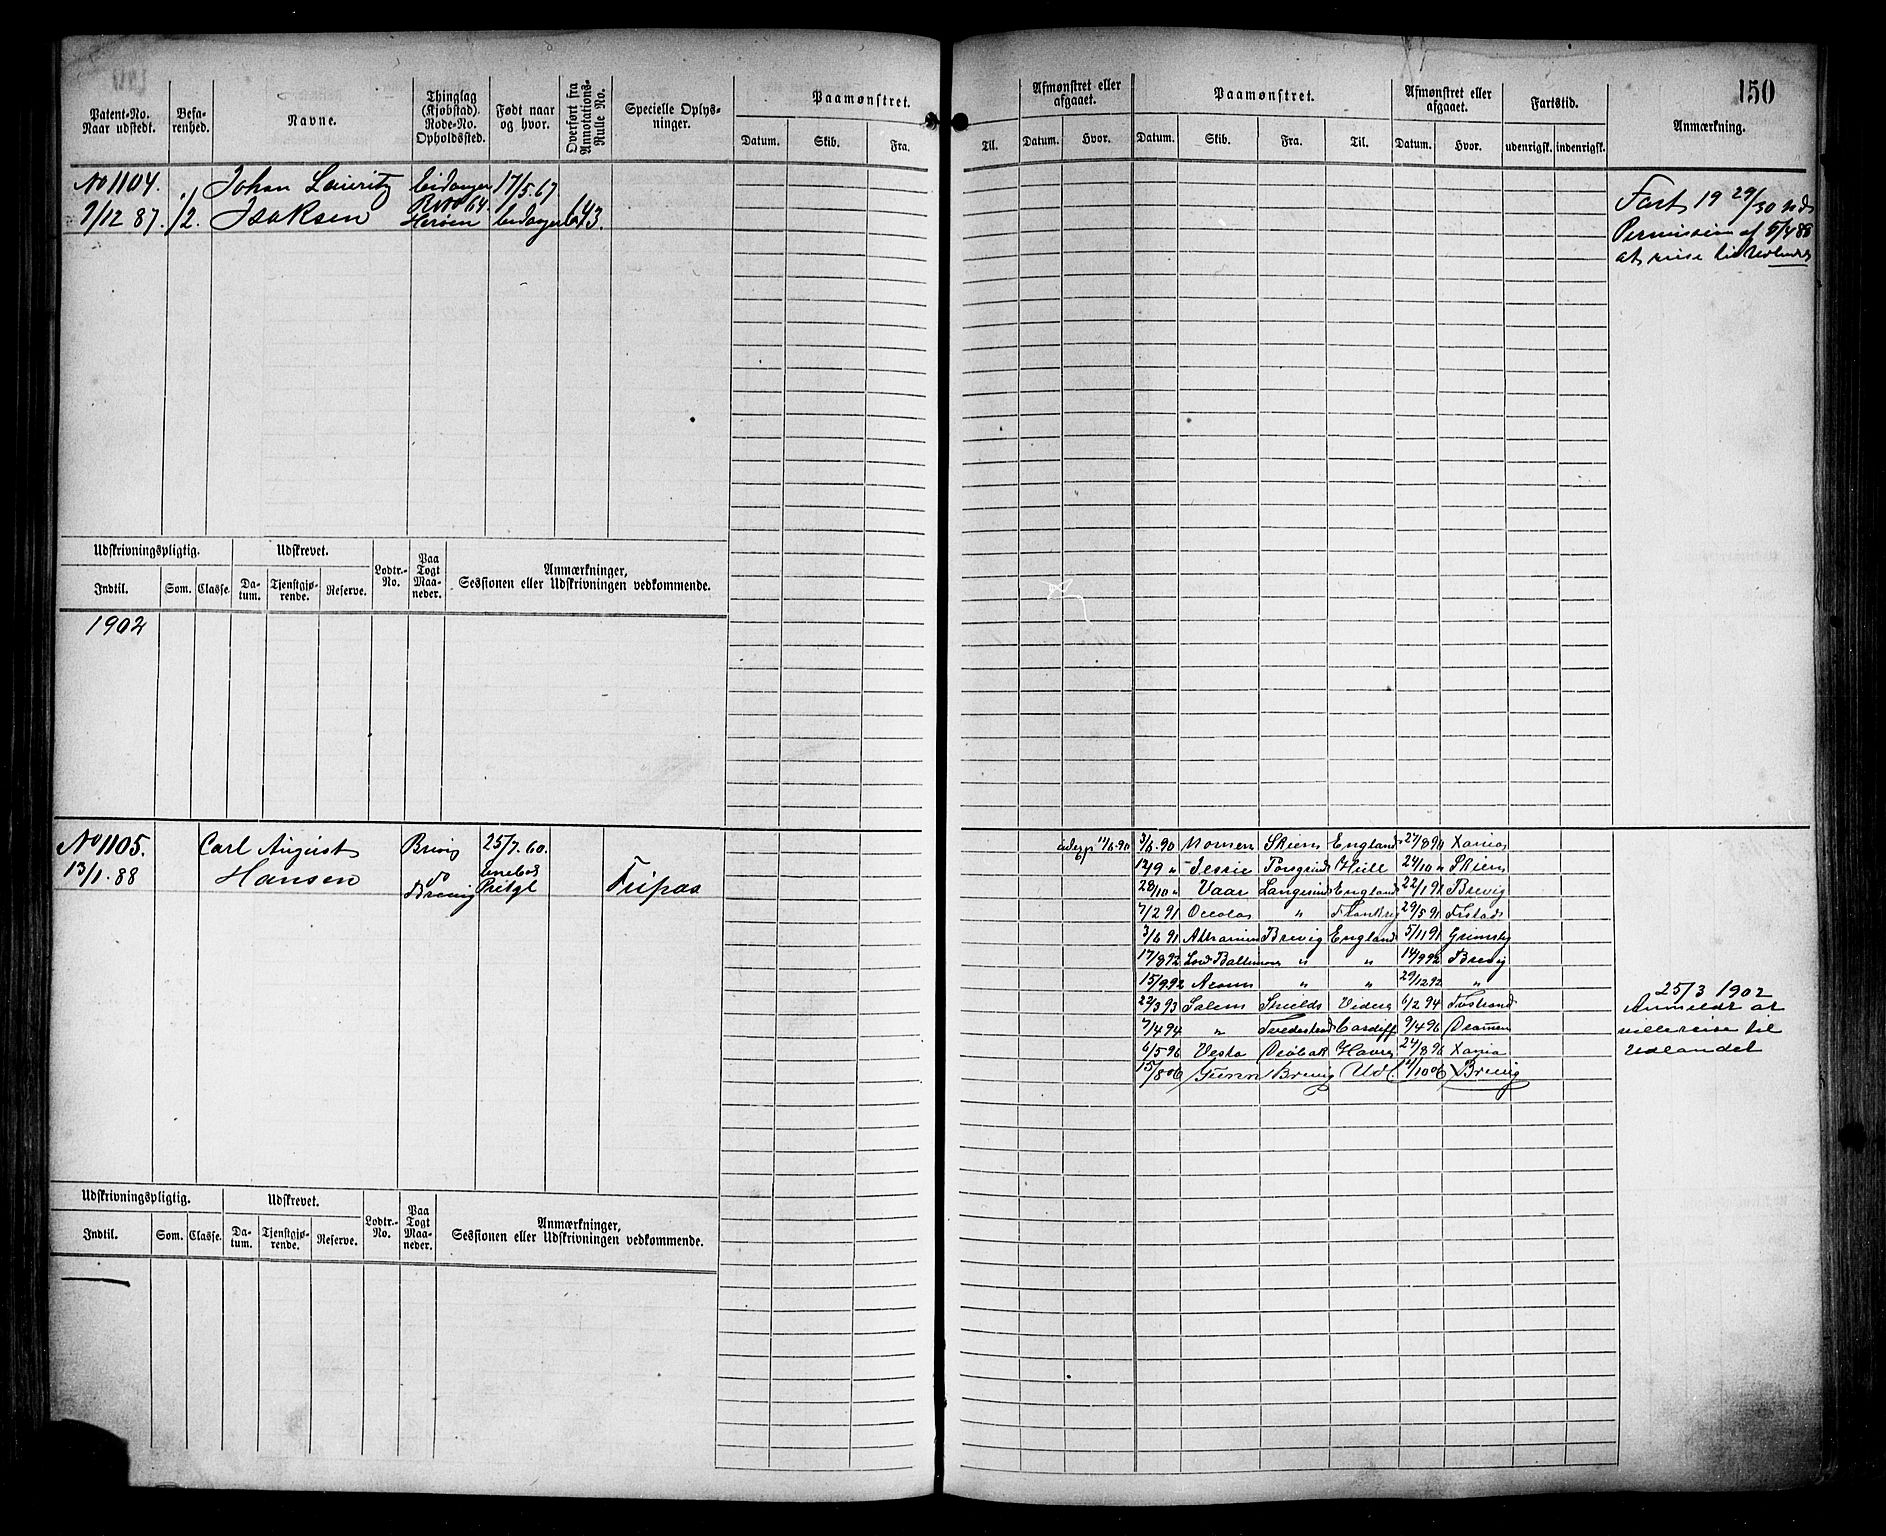 150
Patent-No. Naar udstedt.
Befarenhed.
Navne.
Thinglag (Kjøbstad) Rode-No. Opholdssted.
Født naar og hvor.
Overført fra Annotations-Rulle No.
Specielle Oplysninger.
Paamønstret.
Datum. Skib. Fra. Til.
Afmønstret eller afgaaet.
Datum. Hvor.
Paamønstret.
Datum. Skib. Fra. Til.
Afmønstret eller afgaaet.
Datum. Hvor.
Fartstid.
udenrigsk. indenrigsk.
Anmærkning.
No 1104. Johan Lauritz Eidanger 17/5.67
9/12 87. 1/2. Isaksen 64. Eidanger 643.
Herøen
Fart 19 29/30
Permission af 5/4 88
at reise til Udlandet
Udskrivningspligtig. Udskrevet. Lodtr.-No. Paa Togt Maaneder. Anmærkninger, Sessionen eller Udskrivningen vedkommende.
Indtil. Som. Classe. Datum. Tjenstgjørende. Reserve.
1902
No 1105. Carl August Brevig 25/7.60.
13/1.88 Hansen do Brevig Fripas
3/6.90 Skien England 27/8 90 Xania
12/9 " Jessie Porsgrund Hull 24/10 " Skien
28/10 " Vaar Langesund England 22/1 91 Brevig
7/2 91 " 29/5 91 Frstad
3/6 91 Brevig England 5/11 91 Grimsby
17/8 92 Lord Baltimore " " 14/9 92 Brevig
15/9 92 " " 29/12 92 "
22/3 93 Salem Shields 6/2 94
7/4 94 " Tvedestrand Cardiff 9/4 96 Dramen
6/5 96 Vesta Drøbak Havre 24/8 96 Xania
15/8 06 Gunn Brevig Udl. /10 06 Brevig
25/3 1902
Anmeldt at
ville reise til
Udlandet
Udskrivningspligtig. Udskrevet. Lodtr.-No. Paa Togt Maaneder. Anmærkninger, Sessionen eller Udskrivningen vedkommende.
Indtil. Som. Classe. Datum. Tjenstgjørende. Reserve.